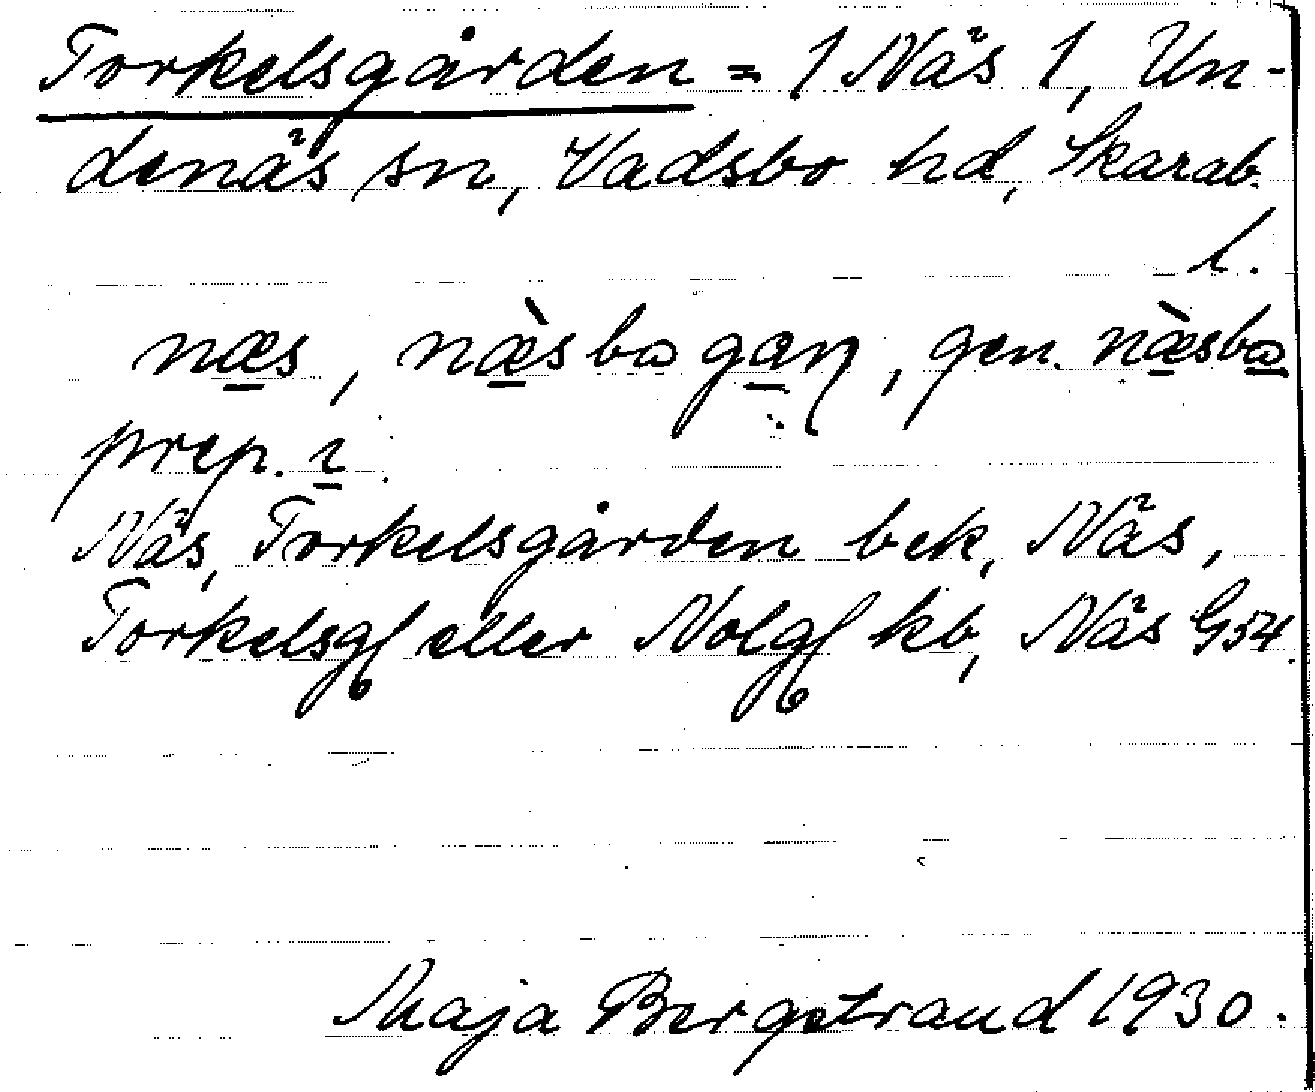 Torkelsgården = 1 Näs 1, Un-
denäs sn, Vadsbo hd, Skarab.
l.
næs, næ̀sbogaɳ, gen. næ̀sbo
prep. i.
Näs, Torkelsgården bek, Näs,
Torkelsg/ eller Nolg/ kb, Näs G54.
Maja Bergstrand 1930.